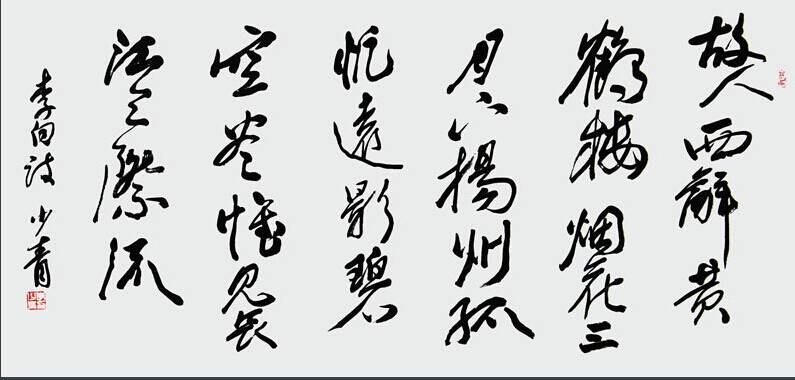 故人西辭黄
鶴楼烟花三
月下揚州孤
帆遠影碧
空尽惟见长
江天際流
李白诗 少青